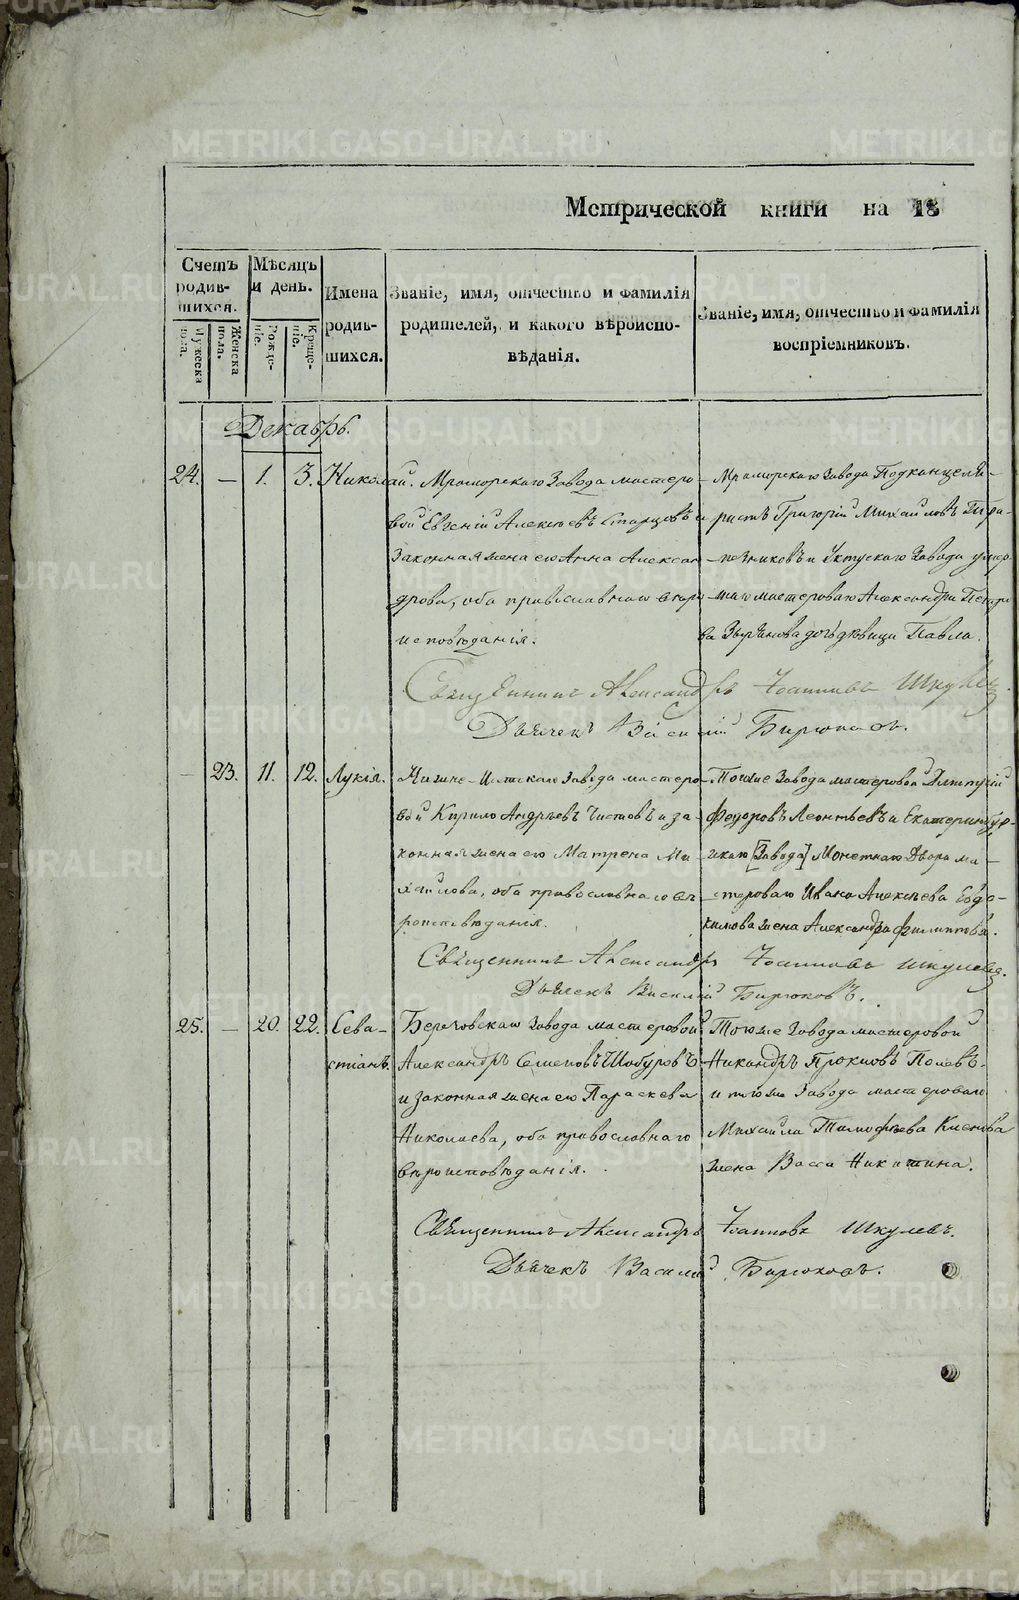 Метрической книги на 18
Счетъ родив-шихся.
Мѣсяцъ и день.
Имена родив-шихся.
Званіе, имя, отчество и фамилія родителей, и какого вѣроиспо-вѣданія.
Званіе, имя, отчество и фамилія воспріемниковъ.
Мужеска пола.
Женска пола.
Рожде-ніе.
Креще-ніе.
Декабрь.
24. — 1. 3. Николай.
Мраморскаго Завода мастеро-
вой Евгеній Алексѣевъ Старцовъ и
законная жена его Анна Алексан
дрова, оба православнаго вѣро
исповѣданія.
Мраморскаго Завода Подканцеля-
ристъ Григорій Михайловъ
и Уктускаго Завода умер-
шаго мастероваго Александра Петро
ва Зырянова дочь дѣвица Павла.
Священникъ Александръ Іоанновъ Шкулевъ
Дьячекъ Василій Бирюковъ.
— 23. 11. 12. Лукія.
Нижне-Исетскаго Завода мастеро-
вой Кирило Андреевъ Чистовъ и за-
конная жена его Матрена Ми-
хайлова, оба православнаго вѣ-
роисповѣданія.
Тогоже Завода мастеровой Дмитрій
Федоровъ Леонтьевъ и Екатеринбур-
скаго [Завода] Монетнаго Двора ма-
стероваго Ивана Алексѣева Евдо-
кимова жена Александра Филиппова.
Священникъ Александръ Іоанновъ Шкулевъ.
Дьячекъ Василій Бирюковъ.
25. — 20. 22. Сева-
стіанъ.
Березовскаго Завода мастеровой
Александръ Семеновъ Шабуровъ
и законная жена его Параскева
Николаева, оба православнаго
вѣроисповѣданія.
Тогоже Завода мастеровой
Никандръ Прокповъ Поповъ.
и тогоже Завода мастероваго
Михаила Тимофѣева
жена Васса Никитина.
Священникъ Александръ Іоанновъ Шкулевъ.
Дьячекъ Василій Бирюковъ.
METRIKI.GASO-URAL.RU